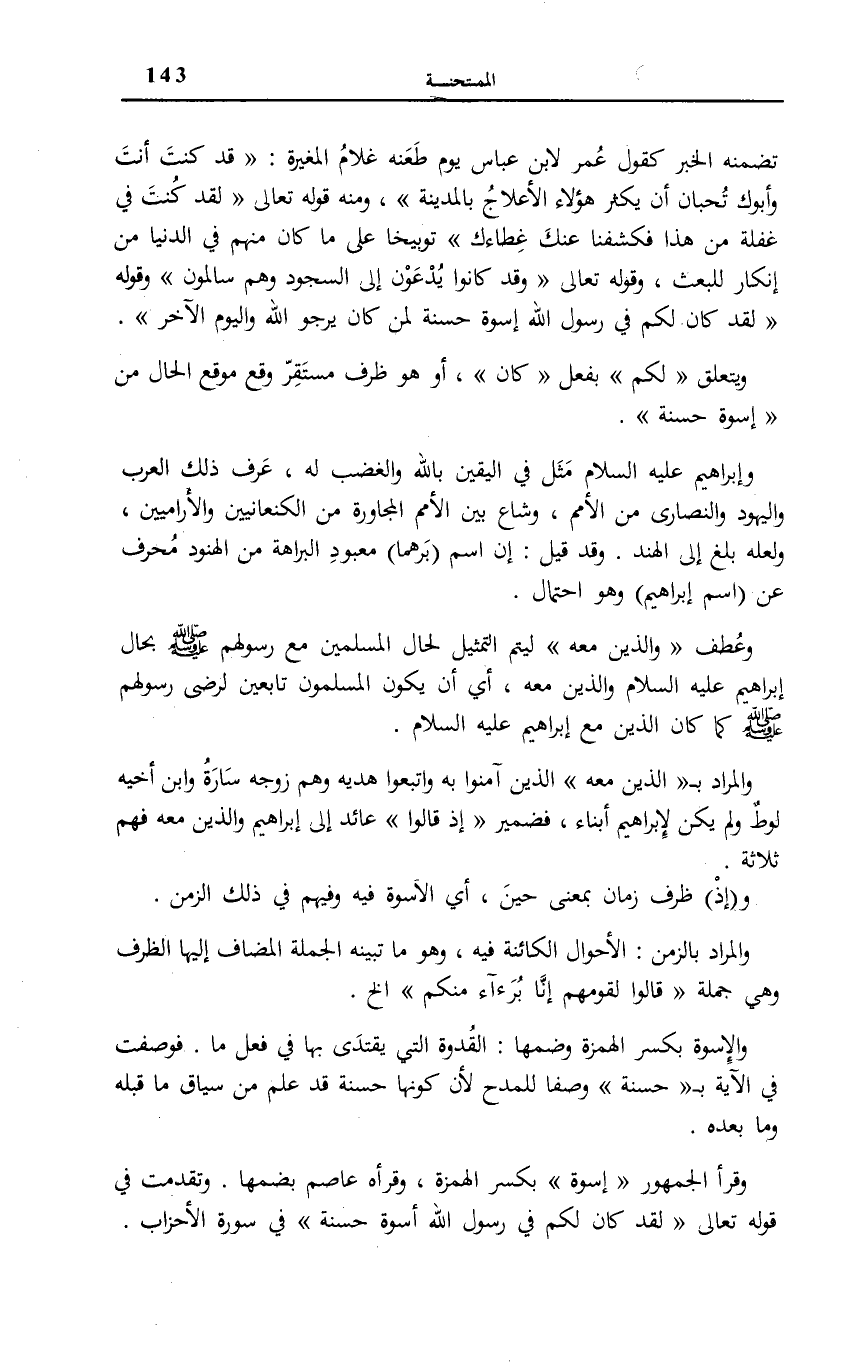 143
الممتحنــة
تضمنه الخبر كقول عُمر لابن عباس يوم طَعَنه غلامُ المغيرة : « قد كنتَ أنتَ
وأبوك تُحبان أن يكثر هؤلاء الأعلاجُ بالمدينة » ، ومنه قوله تعالى « لقد كُنتَ في
غفلة من هذا فكشفنا عنكَ غِطاءك » توبيخا على ما كان منهم في الدنيا من
إنكار للبعث ، وقوله تعالى « وقد كانوا يُدْعَوْن إلى السجود وهم سالمون » وقوله
« لقد كان لكم في رسول الله إسوة حسنة لمن كان يرجو الله واليوم الآخر » .
ويتعلق « لكم » بفعل « كان » ، أو هو ظرف مستَقِرّ وقع موقع الحال من
« إسوة حسنة » .
وإبراهيم عليه السلام مَثَل في اليقين بالله والغضب له ، عَرف ذلك العرب
واليهود والنصارى من الأمم ، وشاع بين الأمم المجاورة من الكنعانيين والأراميين ،
ولعله بلغ إلى الهند . وقد قيل : إن اسم (بَرهما) معبودِ البراهة من الهنود مُحرف
عن (اسم إبراهيم) وهو احتمال .
وعُطف « والذين معه » ليتم التمثيل لحال المسلمين مع رسولهم ﷺ بحال
إبراهيم عليه السلام والذين معه ، أي أن يكون المسلمون تابعين لرضى رسولهم
ﷺ كما كان الذين مع إبراهيم عليه السلام .
والمراد بـ« الذين معه » الذين آمنوا به واتبعوا هديه وهم زوجه سَارَةُ وابن أخيه
لوطٌ ولم يكن لإبراهيم أبناء ، فضمير « إذ قالوا » عائد إلى إبراهيم والذين معه فهم
ثلاثة .
و(إذْ) ظرف زمان بمعنى حينَ ، أي الأسوة فيه وفيهم في ذلك الزمن .
والمراد بالزمن : الأحوال الكائنة فيه ، وهو ما تبينه الجملة المضاف إليها الظرف
وهي جملة « قالوا لقومهم إنَّا بُرَءآء منكم » الخ .
والإسوة بكسر الهمزة وضمها : القُدوة التي يقتدَى بها في فعل ما . فوصفت
في الآية بـ« حسنة » وصفا للمدح لأن كونها حسنة قد علم من سياق ما قبله
وما بعده .
وقرأ الجمهور « إسوة » بكسر الهمزة ، وقرأه عاصم بضمها . وتقدمت في
قوله تعالى « لقد كان لكم في رسول الله أسوة حسنة » في سورة الأحزاب .